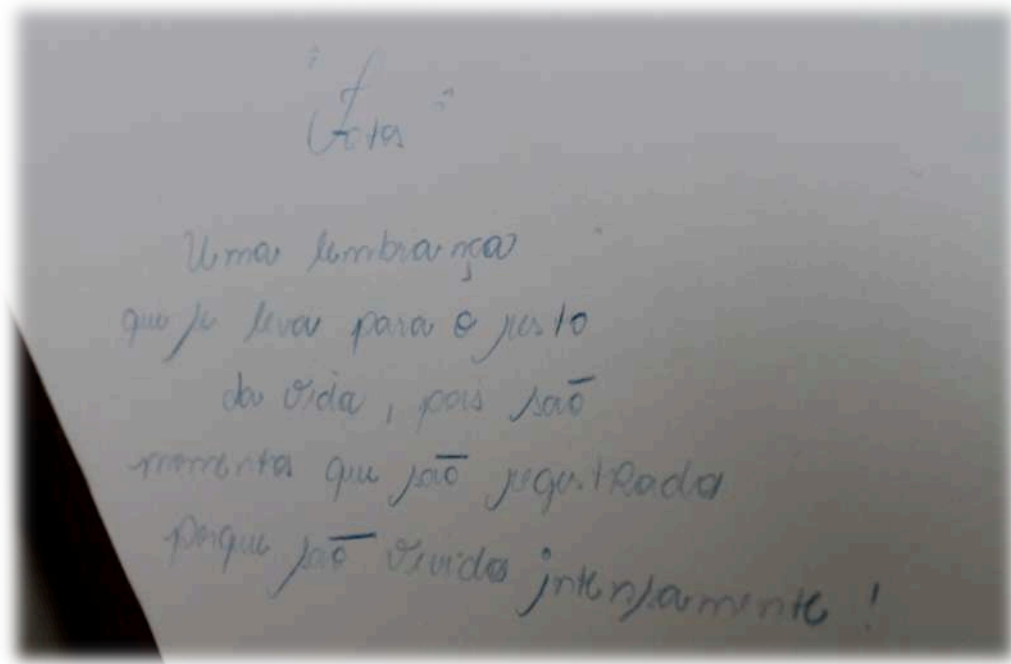 "Fotos"
Uma lembrança
que se leva para o resto
da vida, pois são
momentos que são registRados
porque são vividos intensamente!